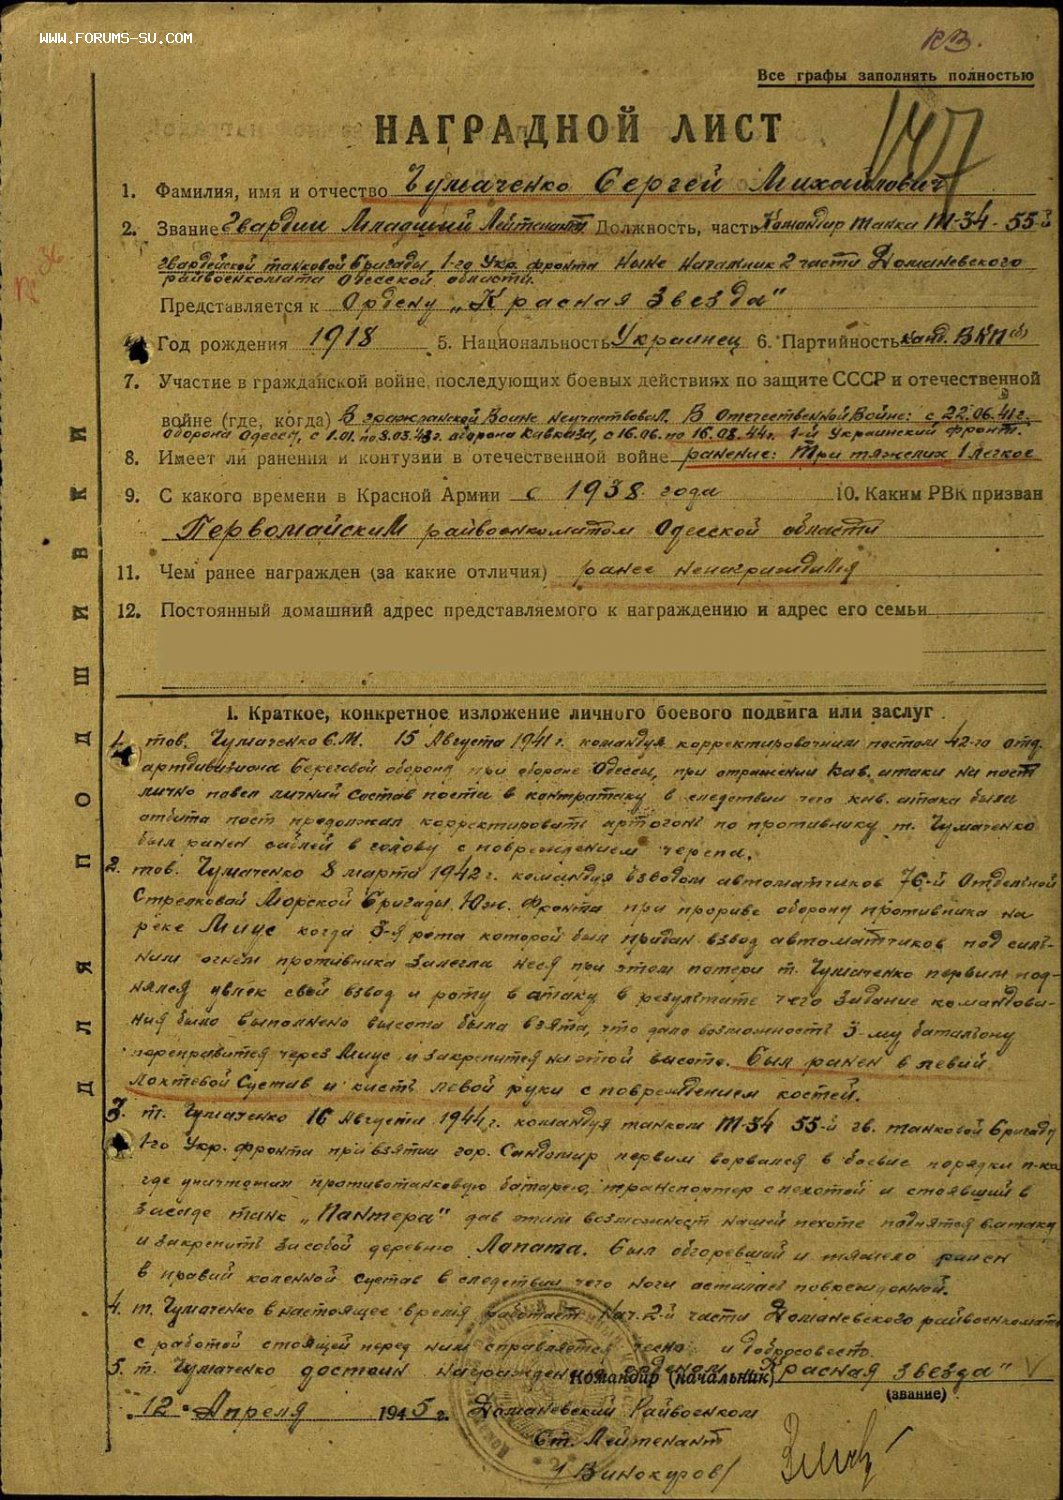 WWW.FORUMS-SU.COM
КЗ.
Все графы заполнять полностью
147
НАГРАДНОЙ ЛИСТ
1. Фамилия, имя и отчество Чумаченко Сергей Михайлович
2. Звание Гвардии Младший Лейтенант Должность, часть Командир танка Т-34 - 55-й
гвардейской танковой бригады, 1-го Укр. фронта ныне начальник 2 части Доманевского
райвоенкомата Одесской области.
Представляется к Ордену „Красная Звезда"
4. Год рождения 1918 5. Национальность Украинец 6. Партийность канд. ВКП(б)
7. Участие в гражданской войне, последующих боевых действиях по защите СССР и отечественной
войне (где, когда) В гражданской Воине неучаствовал. В Отечественной Войне: с 22.06.41г.
оборона Одессы, с 1.01. по 8.03.43г. оборона Кавказа, с 16.06. по 16.08.44г. 1-й Украинский фронт.
8. Имеет ли ранения и контузии в отечественной войне ранение: Три тяжелих 1 легкое
9. С какого времени в Красной Армии с 1938 года 10. Каким РВК призван
Первомайским райвоенкоматом Одесской области
11. Чем ранее награжден (за какие отличия) ранее ненаграждался
12. Постоянный домашний адрес представляемого к награждению и адрес его семьи
ДЛЯ ПОДШИВКИ
I. Краткое, конкретное изложение личного боевого подвига или заслуг
1. тов. Чумаченко С.М. 15 Августа 1941г. командуя корректировочним постом 42-го отд.
артдивизиона Береговой оборони при обороне Одессы, при отражении кав. атаки на пост
лично повел личний состав поста в контратаку в следствии чего кав. атака была
отбита пост продолжал корректировать артогонь по противнику т. Чумаченко
был ранен саблей в голову с повреждением черепа.
2. тов. Чумаченко 8 марта 1942г. командуя взводом автоматчиков 76-й Отдельной
Стрелковай Морской Бригады Юж. Фронта при прориве оборони противника на
реке Миус когда 3-я рота которой был придан взвод автоматчиков под силь-
ним огнём противника залегла неся при этом потери т. Чумаченко первим под-
нялся увлек свой взвод и роту в атаку в результате чего задание командова-
ния было выполнено высота была взята, что дало возможность 3-му батальону
переправится через Миус и закрепится на этой высоте. Был ранен в левий
локтевой Сустав и кисть левой руки с повреждением костей.
3. т. Чумаченко 16 Августа 1944г. командуя танком Т-34 55-й гв. танковой бригады
1-го Укр. фронта при взятии гор. Сандомир первим ворвался в боевие порядки п-ка
где уничтожил противотанковую батарею, транспортер с пехотой и стоявший в
засаде танк „Пантера" дав этим возможност нашей пехоте поднятся в атаку
и закрепить за собой деревню Лапата. Был обгоревший и тяжело ранен
в правий коленной сустав в следствии чего нога осталась поврежденной.
4. т. Чумаченко в настоящее время работает Нач. 2-й части Доманевского райвоенкомата
с работой стоящей перед ним справляется честно и добросовестно.
5. т. Чумаченко достоин награждения орденом „Красная звезда"
Командир (начальник)
(звание)
12 Апреля 1945 г. Доманевский Райвоенком
Ст. Лейтенант
/Винокуров/